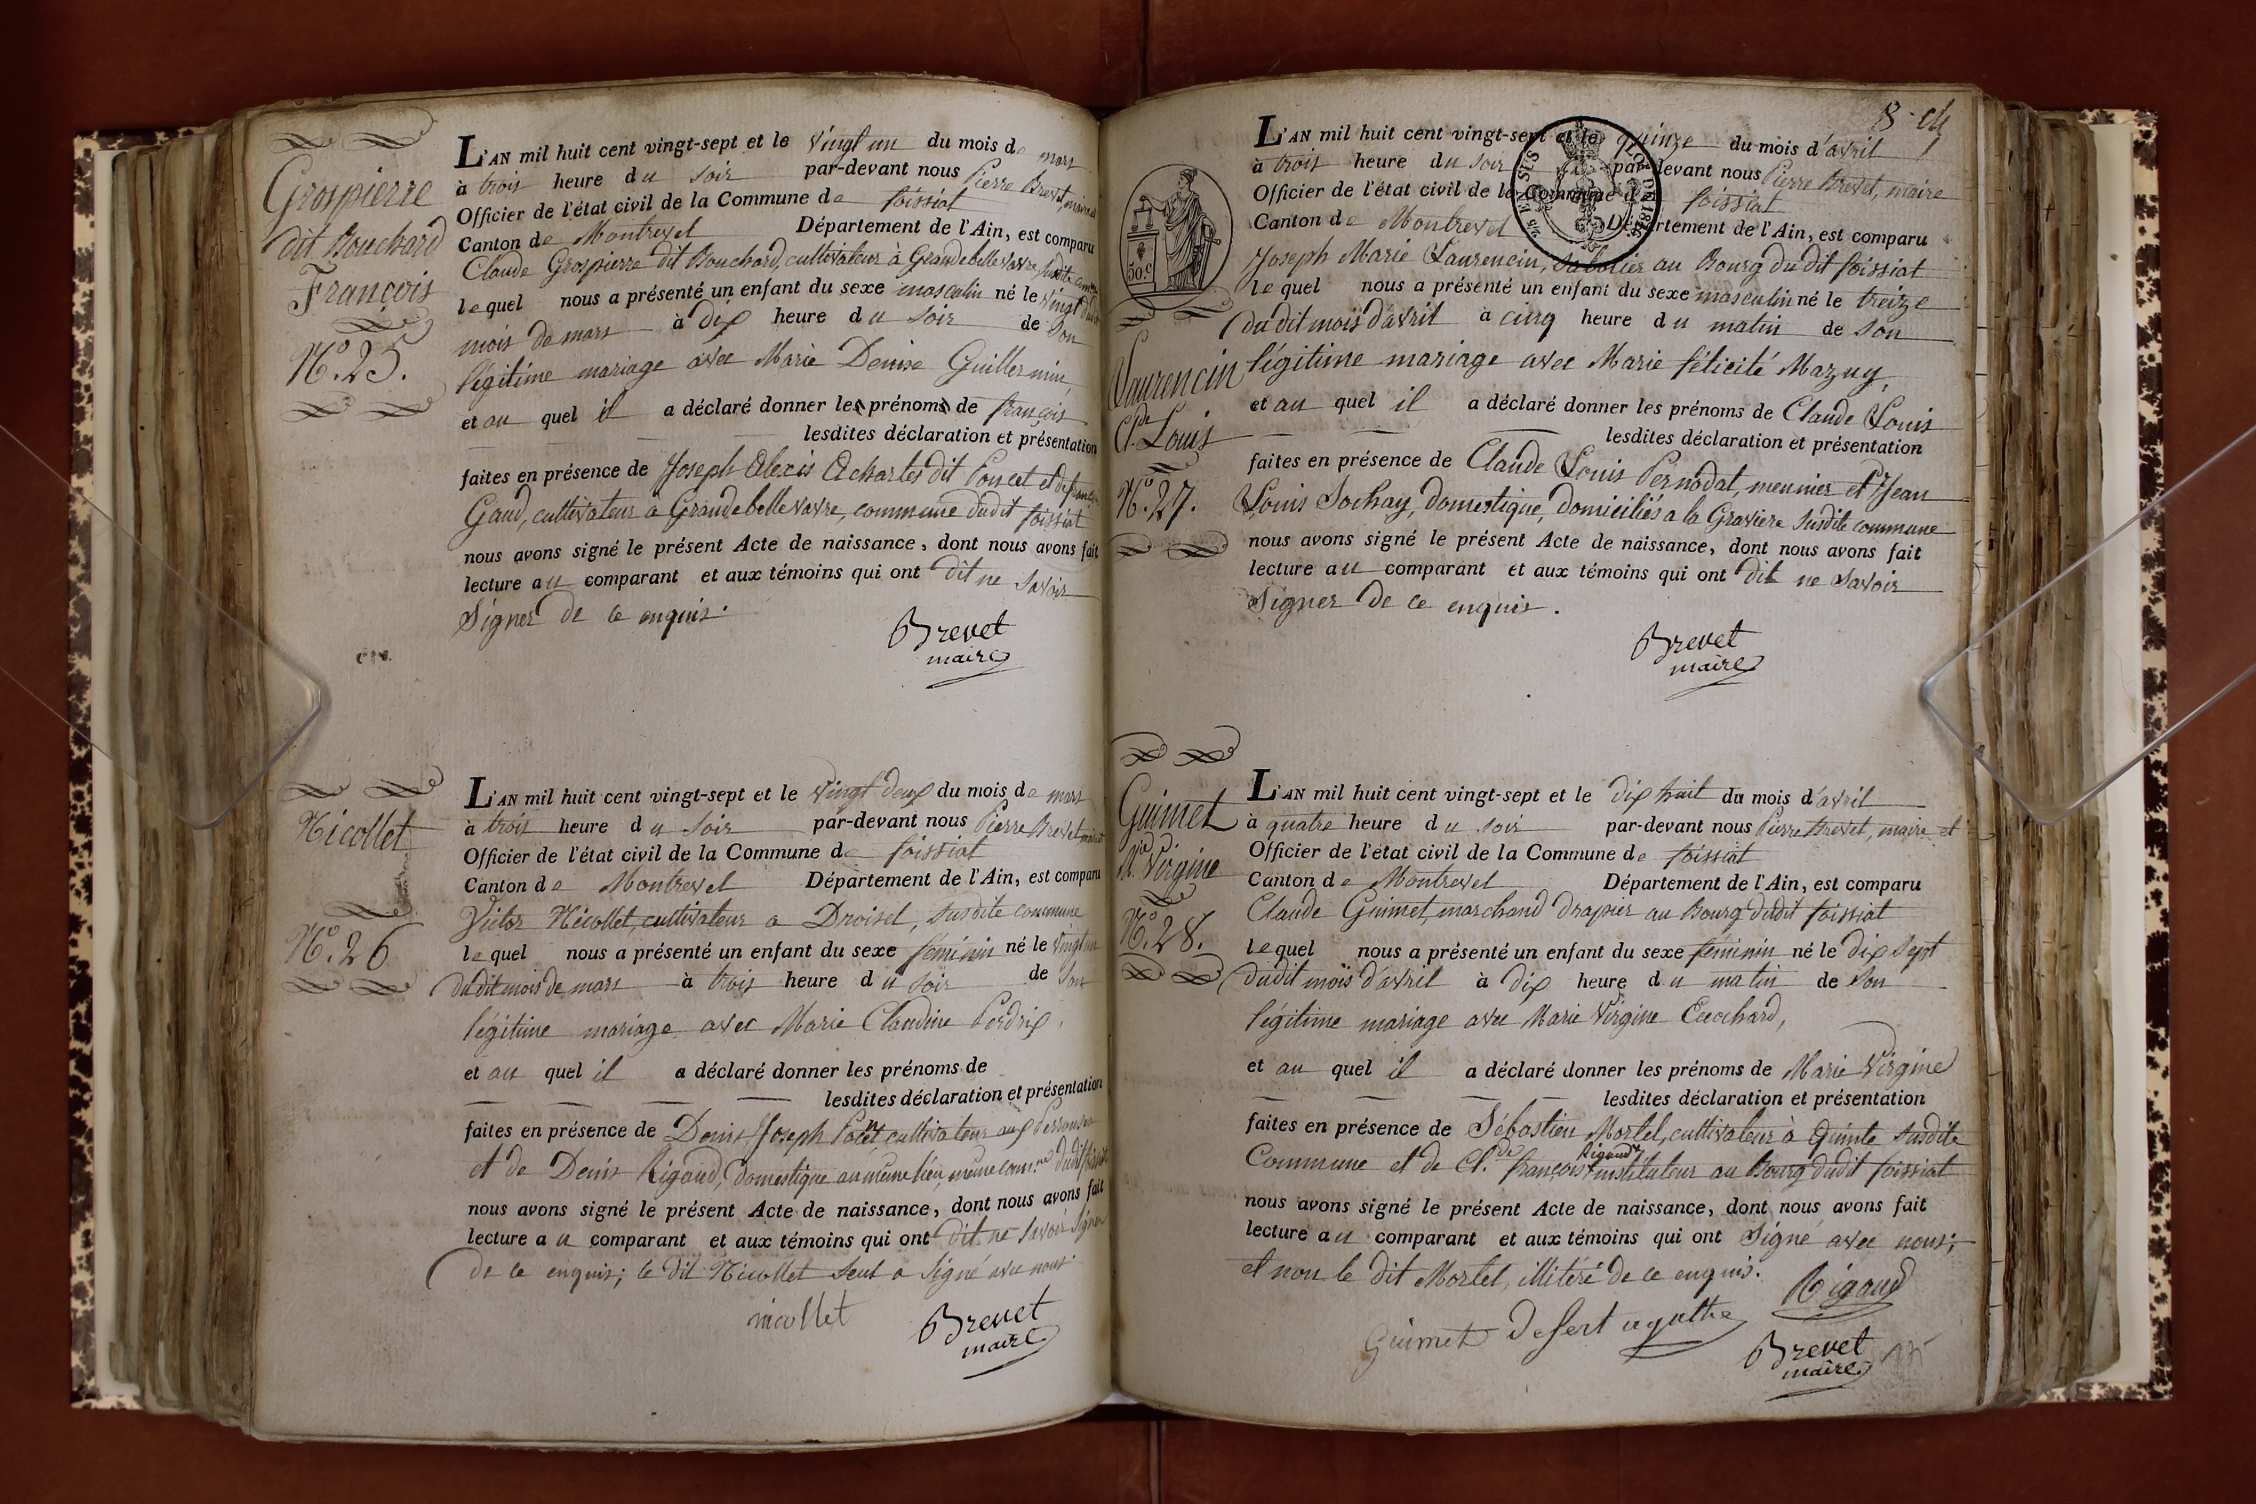 Grospierre
dit Bouchard
François
N.° 25.
L'AN mil huit cent vingt-sept et le vingt un du mois de mars
à trois heure du soir par-devant nous Pierre Brevet, maire et
Officier de l'état civil de la Commune de foissiat
Canton de Montrevel Département de l'Ain, est comparu
Claude Grospierre dit Bouchard, cultivateur à Grandebellevavre susdite comm
lequel nous a présenté un enfant du sexe masculin né le vingt dudit
mois de mars à dix heure du soir de son
légitime mariage avec Marie Denise Guillermin,
et au quel il a déclaré donner les prénoms de françois
lesdites déclaration et présentation
faites en présence de Joseph Alexis Acharles dit Poncet et de françois
Gaud, cultivateur à Grandebellevavre, commune dudit foissiat
nous avons signé le présent Acte de naissance, dont nous avons fait
lecture au comparant et aux témoins qui ont dit ne savoir
signer de ce enquis.
Brevet
maire
Nicollet
N.° 26
L'AN mil huit cent vingt-sept et le vingt deux du mois de mars
à trois heure du soir par-devant nous Pierre Brevet, maire et
Officier de l'état civil de la Commune de foissiat
Canton de Montrevel Département de l'Ain, est comparu
Victor Nicollet, cultivateur a Droisel, susdite commune
lequel nous a présenté un enfant du sexe féminin né le vingt un
du dit mois de mars à trois heure du soir de son
légitime mariage avec Marie Claudine Perdrix,
et au quel il a déclaré donner les prénoms de
lesdites déclaration et présentation
faites en présence de Denis Joseph cultivateur aux
et de Denis Rigaud, domestique au même lieu, même com.ne dudit foissiat
nous avons signé le présent Acte de naissance, dont nous avons fait
lecture au comparant et aux témoins qui ont dit ne savoir signer
de ce enquis; le dit Nicollet seul a signé avec nous.
nicollet
Brevet
maire
8
50.c
Laurencin
Cl.de Louis
N.° 27.
L'AN mil huit cent vingt-sept et le quinze du mois d'avril
à trois heure du soir par-devant nous Pierre Brevet, maire
Officier de l'état civil de la Commune de foissiat
Canton de Montrevel Département de l'Ain, est comparu
Joseph Marie Laurencin, sabotier au Bourg du dit foissiat
lequel nous a présenté un enfant du sexe masculin né le treize
du dit mois d'avril à cinq heure du matin de son
légitime mariage avec Marie félicité Mazuy,
et au quel il a déclaré donner les prénoms de Claude Louis
lesdites déclaration et présentation
faites en présence de Claude Louis Pernodat, meunier et Jean
Louis Sochay, domestique, domiciliés a la Graviere susdite commune
nous avons signé le présent Acte de naissance, dont nous avons fait
lecture au comparant et aux témoins qui ont dit ne savoir
signer de ce enquis.
Brevet
maire
Guimet
M.ie Virgine
N.° 28.
L'AN mil huit cent vingt-sept et le dix huit du mois d'avril
à quatre heure du soir par-devant nous Pierre Brevet, maire et
Officier de l'état civil de la Commune de foissiat
Canton de Montrevel Département de l'Ain, est comparu
Claude Guimet, marchand drapier au Bourg dudit foissiat
lequel nous a présenté un enfant du sexe féminin né le dix sept
dudit mois d'avril à dix heure du matin de son
légitime mariage avec Marie Virgine Cuochard,
et au quel il a déclaré donner les prénoms de Marie Virgine
lesdites déclaration et présentation
faites en présence de Sébastien Mortel, cultivateur à Quinte susdite
Commune et de Cl.de françois Rigaud instituteur au Bourg dudit foissiat
nous avons signé le présent Acte de naissance, dont nous avons fait
lecture au comparant et aux témoins qui ont signé avec nous;
et non le dit Mortel, illitéré de ce enquis.
Rigaud
Guimet Desert agathe
Brevet
maire